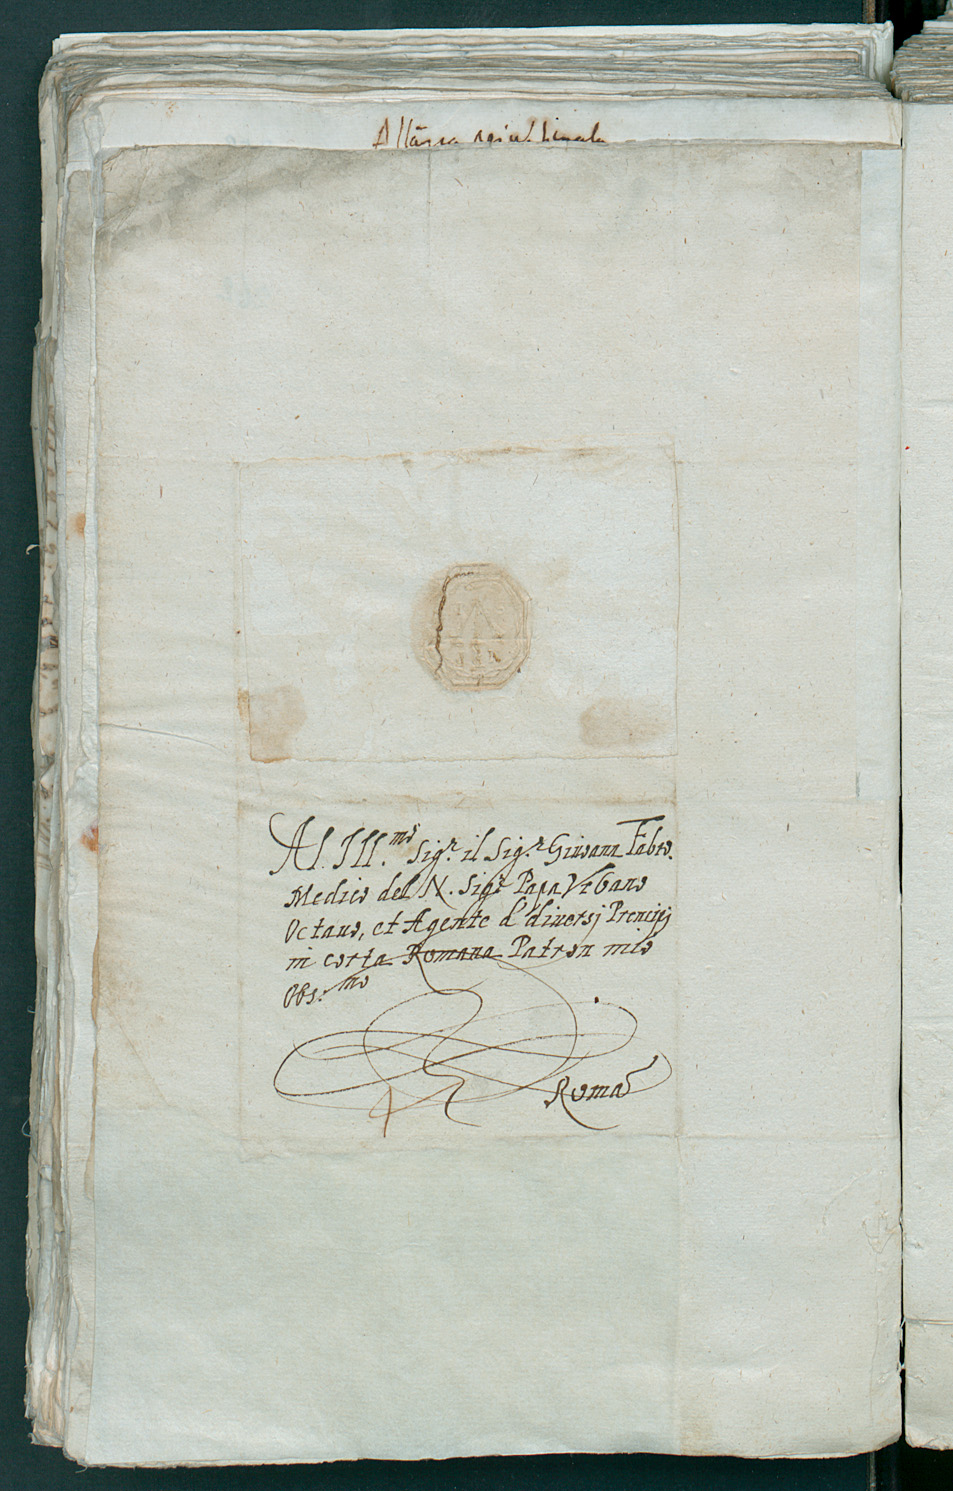 Al. Ill.mo Sig.r il Sig.r Giovann Fabro.
Medico del N. Sig.r Papa Vrbano
Octauo, et Agente d' diuersj Prencipj
in corta Romana Patron mio
Obs.mo
Roma